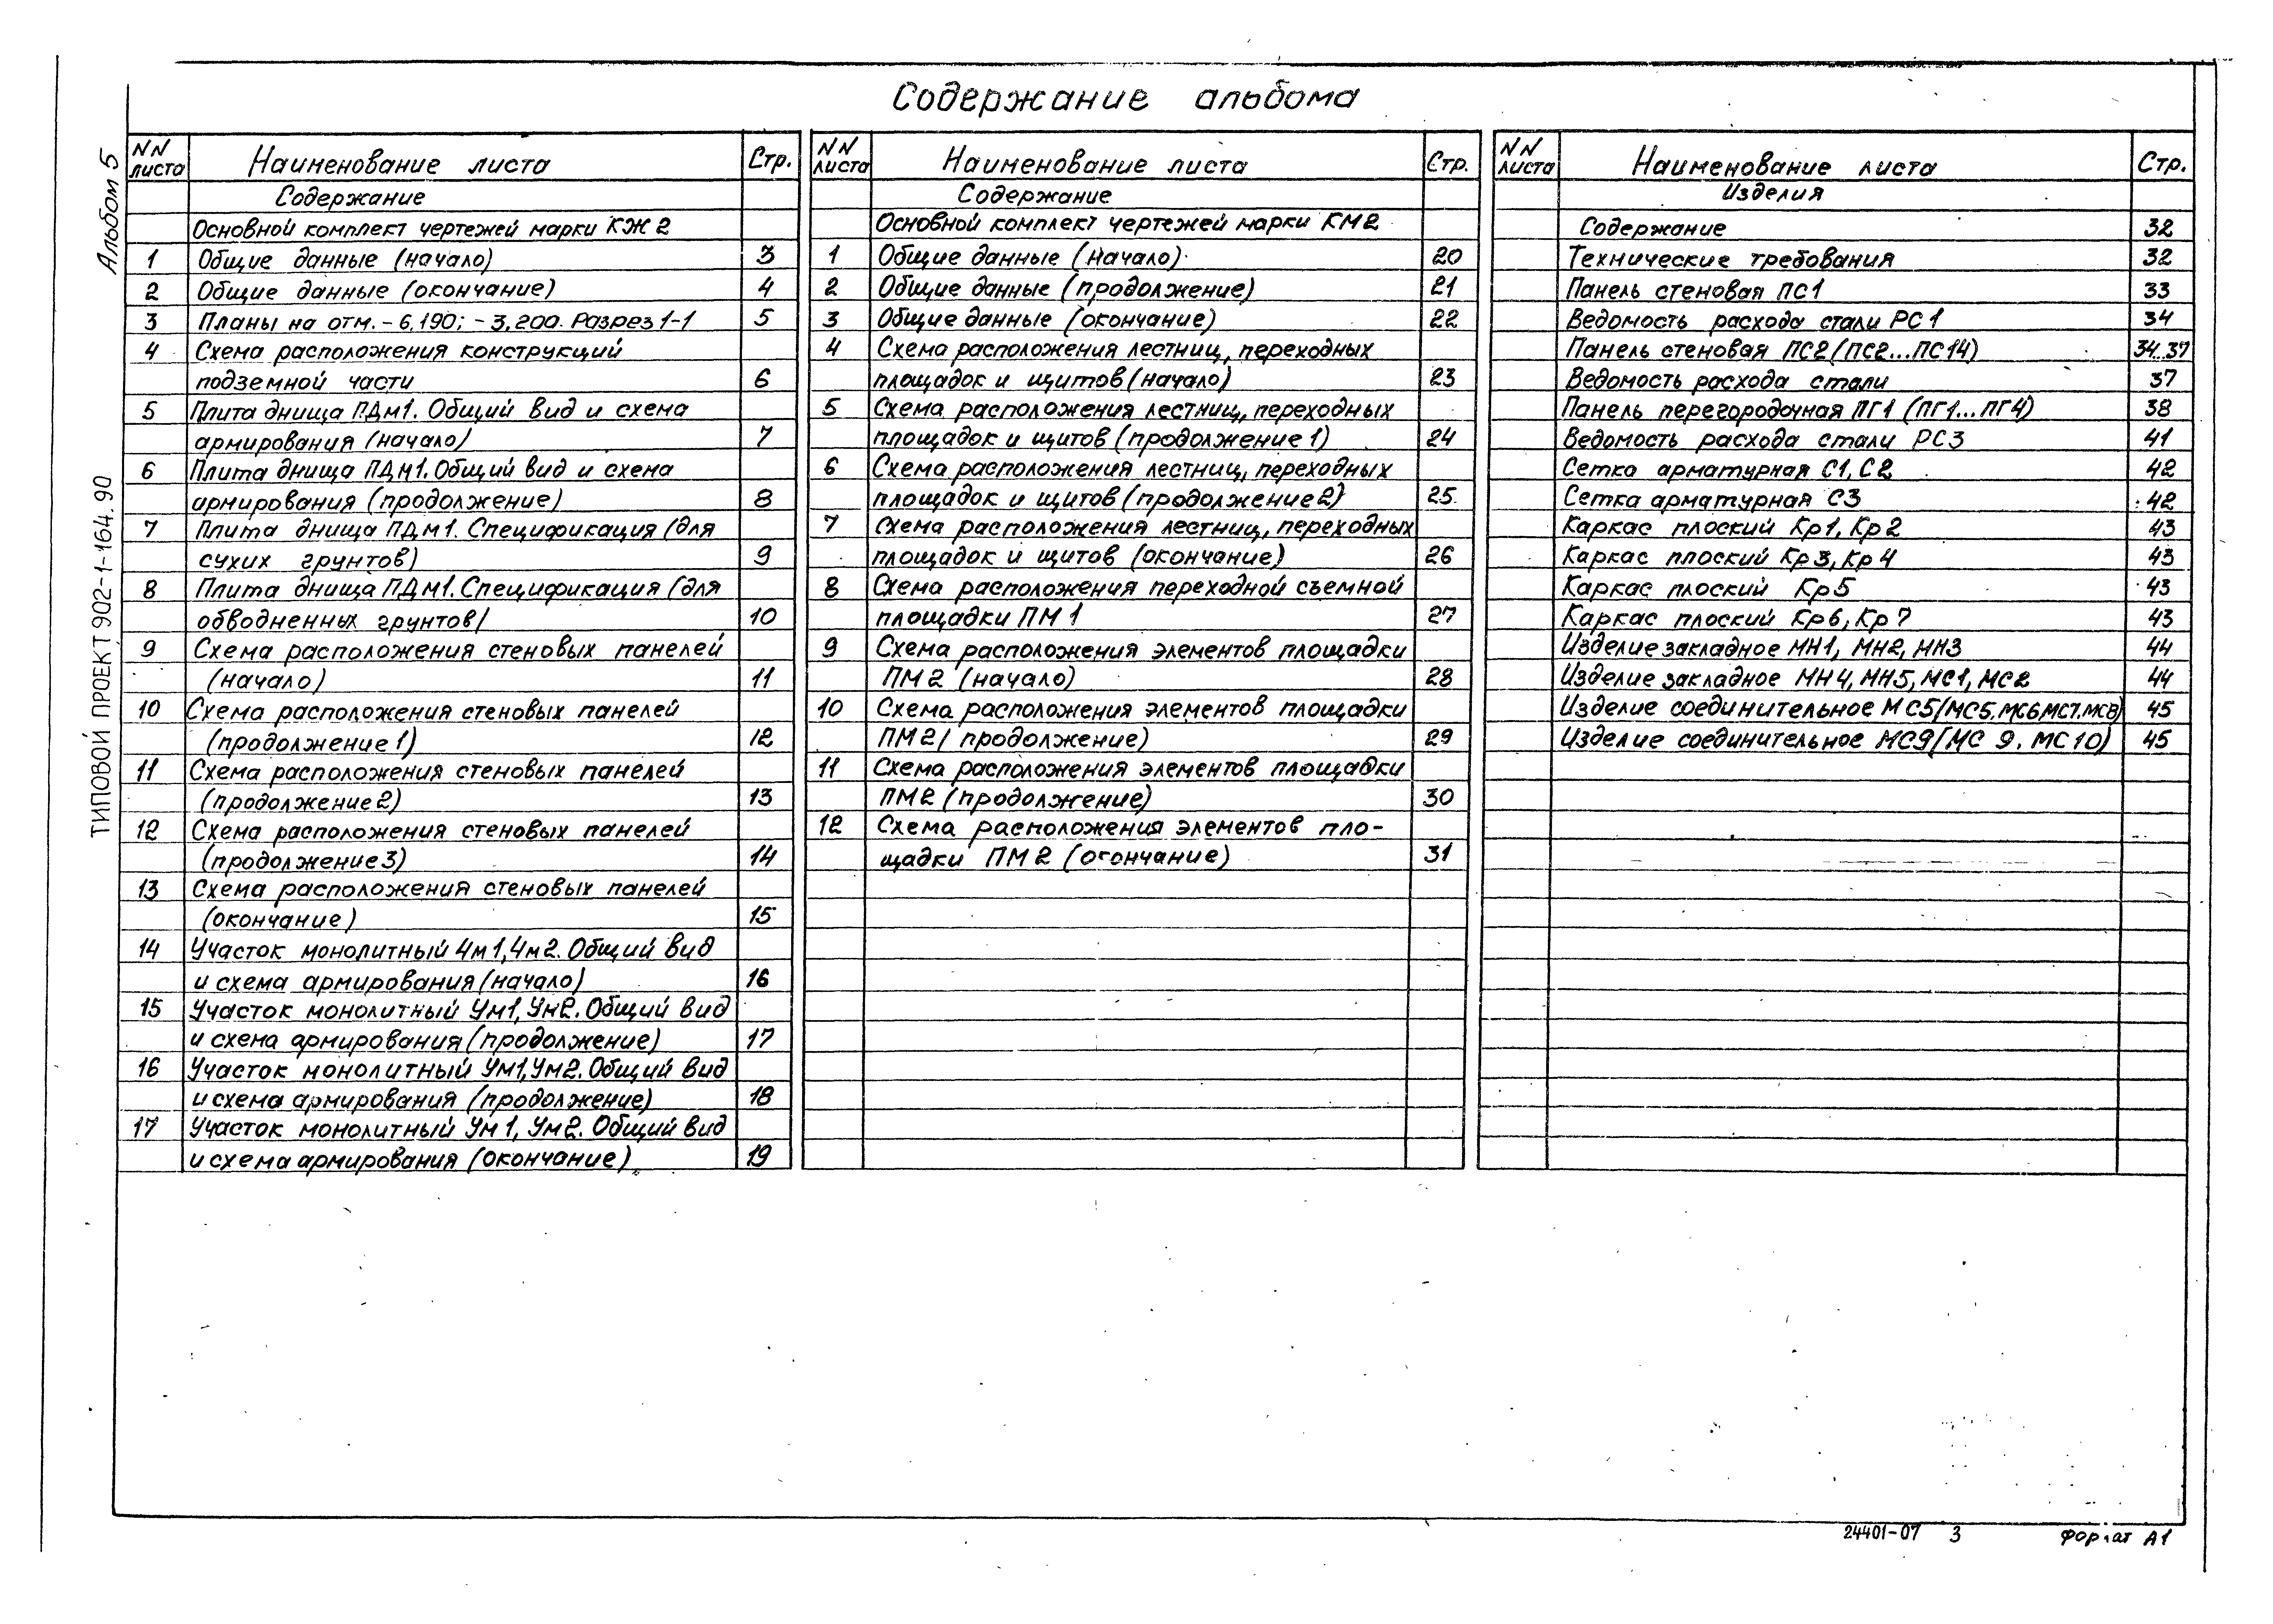 Содержание альбома
Альбом 5
ТИПОВОЙ ПРОЕКТ 902-1-164.90
NN листа Наименование листа Стр.
Содержание
Основной комплект чертежей марки КЖ2
1 Общие данные (начало) 3
2 Общие данные (окончание) 4
3 Планы на отм. -6,190; -3,200. Разрез 1-1 5
4 Схема расположения конструкций
подземной части 6
5 Плита днища ПДм1. Общий вид и схема
армирования (начало) 7
6 Плита днища ПДм1. Общий вид и схема
армирования (продолжение) 8
7 Плита днища ПДм1. Спецификация (для
сухих грунтов) 9
8 Плита днища ПДм1. Спецификация (для
обводненных грунтов) 10
9 Схема расположения стеновых панелей
(начало) 11
10 Схема расположения стеновых панелей
(продолжение 1) 12
11 Схема расположения стеновых панелей
(продолжение 2) 13
12 Схема расположения стеновых панелей
(продолжение 3) 14
13 Схема расположения стеновых панелей
(окончание) 15
14 Участок монолитный Ум1, Ум2. Общий вид
и схема армирования (начало) 16
15 Участок монолитный Ум1, Ум2. Общий вид
и схема армирования (продолжение) 17
16 Участок монолитный Ум1, Ум2. Общий вид
и схема армирования (продолжение) 18
17 Участок монолитный Ум1, Ум2. Общий вид
и схема армирования (окончание) 19
NN листа Наименование листа Стр.
Содержание
Основной комплект чертежей марки КМ2
1 Общие данные (начало) 20
2 Общие данные (продолжение) 21
3 Общие данные (окончание) 22
4 Схема расположения лестниц, переходных
площадок и щитов (начало) 23
5 Схема расположения лестниц, переходных
площадок и щитов (продолжение 1) 24
6 Схема расположения лестниц, переходных
площадок и щитов (продолжение 2) 25
7 Схема расположения лестниц, переходных
площадок и щитов (окончание) 26
8 Схема расположения переходной съемной
площадки ПМ 1 27
9 Схема расположения элементов площадки
ПМ 2 (начало) 28
10 Схема расположения элементов площадки
ПМ 2 (продолжение) 29
11 Схема расположения элементов площадки
ПМ2 (продолжение) 30
12 Схема расположения элементов пло-
щадки ПМ 2 (окончание) 31
NN листа Наименование листа Стр.
Изделия
Содержание 32
Технические требования 32
Панель стеновая ПС1 33
Ведомость расхода стали РС 1 34
Панель стеновая ПС2 (ПС2...ПС14) 34..37
Ведомость расхода стали 37
Панель перегородочная ПГ1 (ПГ1...ПГ4) 38
Ведомость расхода стали РС3 41
Сетка арматурная С1, С2 42
Сетка арматурная С3 42
Каркас плоский Кр1, Кр2 43
Каркас плоский Кр3, Кр4 43
Каркас плоский Кр5 43
Каркас плоский Кр6, Кр7 43
Изделие закладное МН1, МН2, МН3 44
Изделие закладное МН4, МН5, МС1, МС2 44
Изделие соединительное МС5 (МС5, МС6, МС7, МС8) 45
Изделие соединительное МС9 (МС 9. МС10) 45
24401-07 3 Формат А1